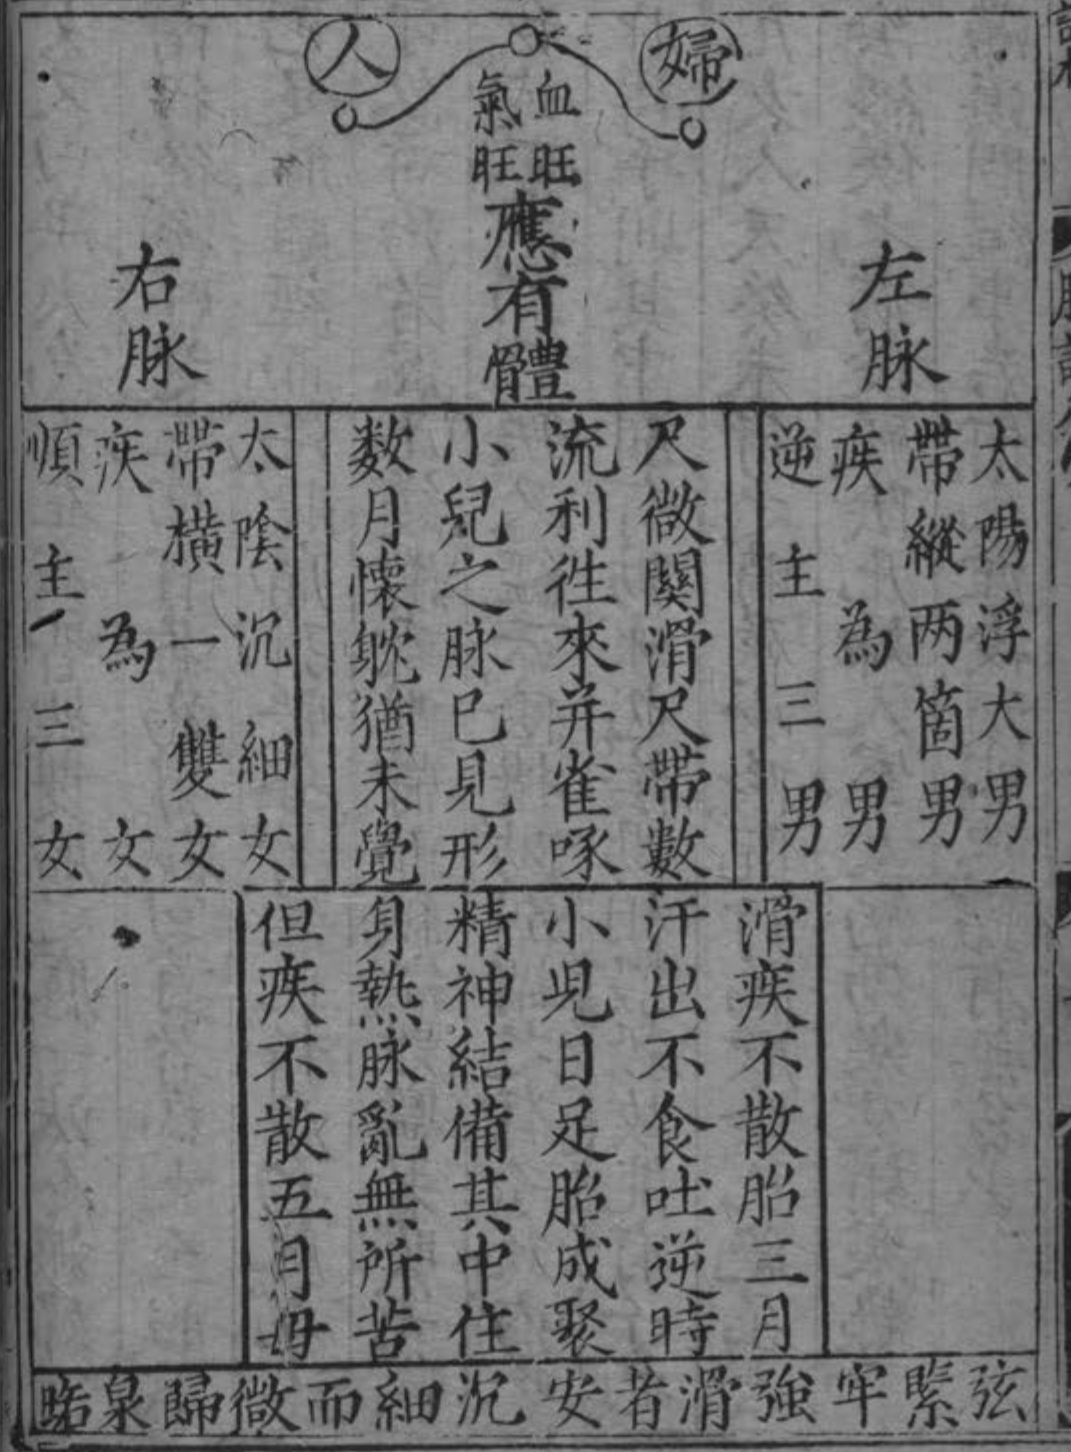 婦人
血旺
氣旺
應有體
左脉
右脉
太陽浮大男
帶縱两箇男
疾為男
逆主三男
尺微關滑尺帶數
流利徃來并雀啄
小兒之脉已見形
数月懷躭猶未覺
太陰沉細女
帶橫一雙女
疾為女
順主三女
滑疾不散胎三月
汗出不食吐逆時
小児日足胎成聚
精神結備其中住
身熱脉亂無所苦
但疾不散五月母
弦緊牢強滑者安沉細而微歸泉路